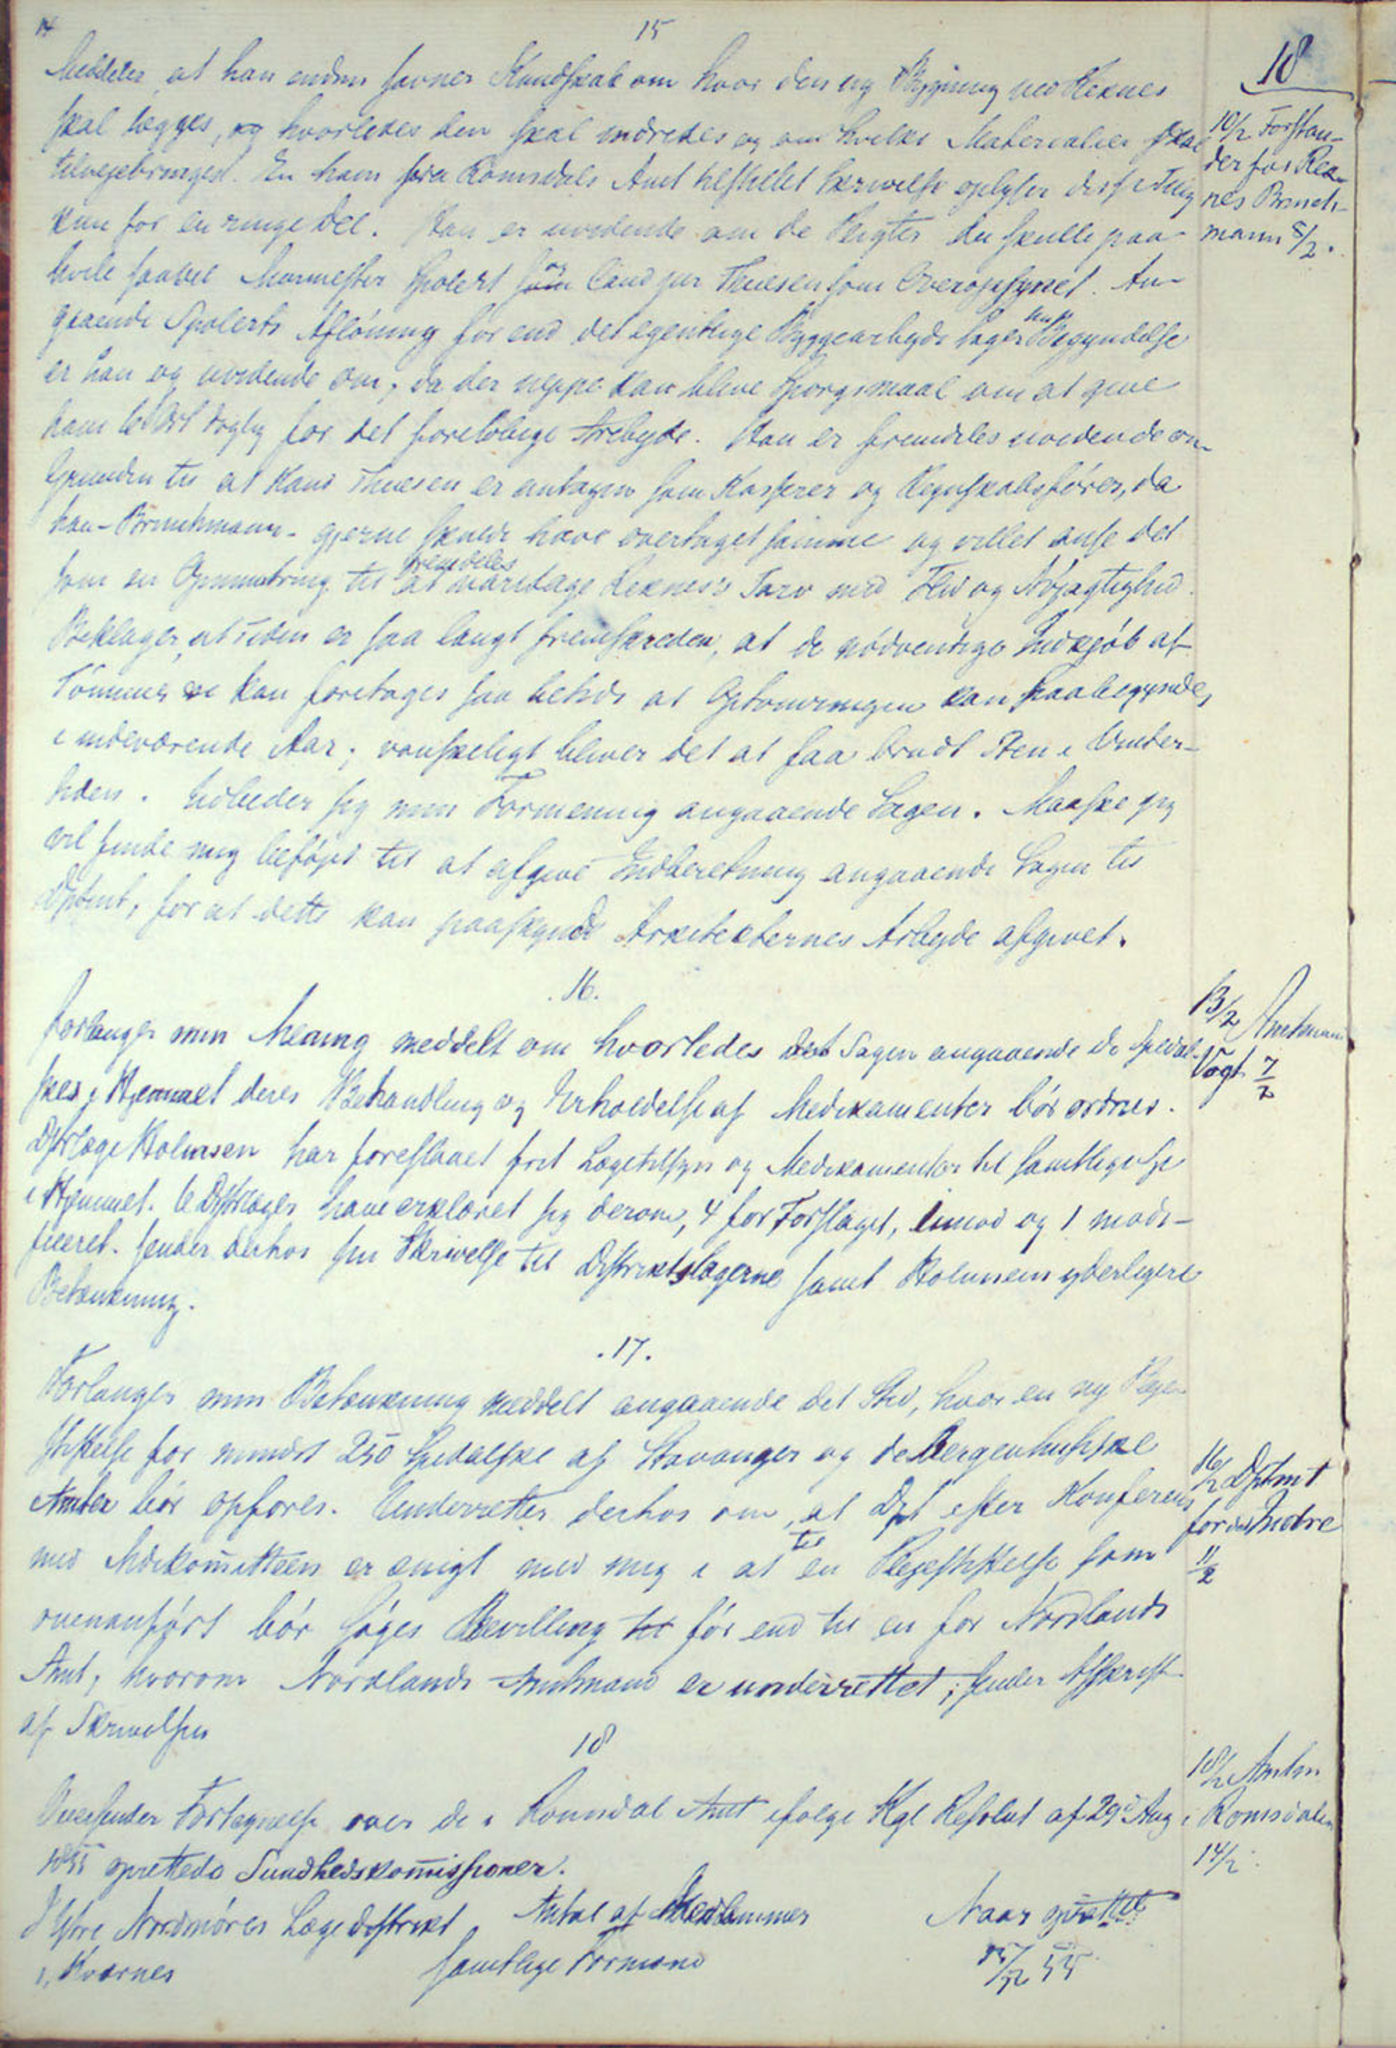 14
15
18
Meddeler, at han endnu savner Kundskab om hvor den ny Bygning ved Reknes
skal lægges, og hvorledes den skal indredes og om hvilke Materialier skal
tilvejebringes. En ham fra Romsdals Amt tilstillet Skrivelse oplyser disse Ting
kun for en ringe Del. Han er uvidende om de Pligter der skulle paa-
hvile saavel Murmester Spolert som Cand jur Thuesen som Overopsynet. An-
gaaende Spolerts Aflöning för end det egentlige Byggearbejde tager sin Begyndelse
er han og uvidende om, da der neppe kan blive Spörgsmaal om at give
ham daglig for det foreløbige Arbejde. Han er fremdeles uvidende om
Grunden til at Kand Thuesen er antagen som Kasserer og Regnskabsförer, da
han - Brinchmann - gjerne skulde have overtaget samme og villet anse det
som en Opmuntring til fremdeles at varetage Reknes's Tarv med Flid og Nöjagtighed.
Beklager, at Tiden er saa langt fremskreden, at de nödvendige Indkjöb af
Tömmer ei kan foretages saa betids at Optömringen kan paabegyndes
i indeværende Aar; vanskeligt bliver det at faa brudt Sten i Vinter-
tiden. Udbeder sig min Formening angaaende Sagen. Maaske jeg
vil finde mig beföjet til at afgive Indberetning angaaende Sagen til
Dptmt, for at dette kan paaskynde Arkitekternes Arbejde afgivet.
10/2 Forstan-
der for Rek-
nes Brinch-
mann 8/2.
.16.
Forlanger min Mening meddelt om hvorledes det Sagen angaaende de Spedal-
skes i Hjemmet deres Behandling og Erholdelse af Medikamenter bör ordnes.
Dstrlæge Holmsen har foreslaaet frit Lægetilsyn og Medikamenter til samtlige Sp
i Hjemmet. 6 Dstrlæger have erklæret sig derom, 4 for Forslaget, 1 imod og 1 modi-
ficeret. Sender derhos sin Skrivelse til Distriktslægerne samt Holmsens yderligere
Betænkning.
13/2 Amtmand
Vogt 7/2
.17.
Forlanger min Betænkning meddelt angaaende det Sted, hvor en ny Pleje-
stiftelse for mindst 250 Spedalske af Stavanger og de Bergenhusiske
Amter bör opföres. Underretter derhos om, at Dpt efter Konferens
med Medkomitteen er enigt med mig i at til en Plejestiftelse som
ovenanfört bör söges Bevilling til för end til en for Nordlands
Amt, hvorom Nordlands Amtmand er underrettet; sender Afskrift
af Skrivelsen
16/2 Dptmt
for det Indre
11/2
18
Oversender Fortegnelse over de i Romsdal Amt ifölge Kgl Resolut af 29d Aug
1855 oprettede Sundhedskomissioner.
I Ytre Nordmöres Lægedistrikt, Antal af Medlemmer Naar oprettet
1, Kværnes samtlige Formænd 55
18/2 Amtm
i Romsdalen
14/2.